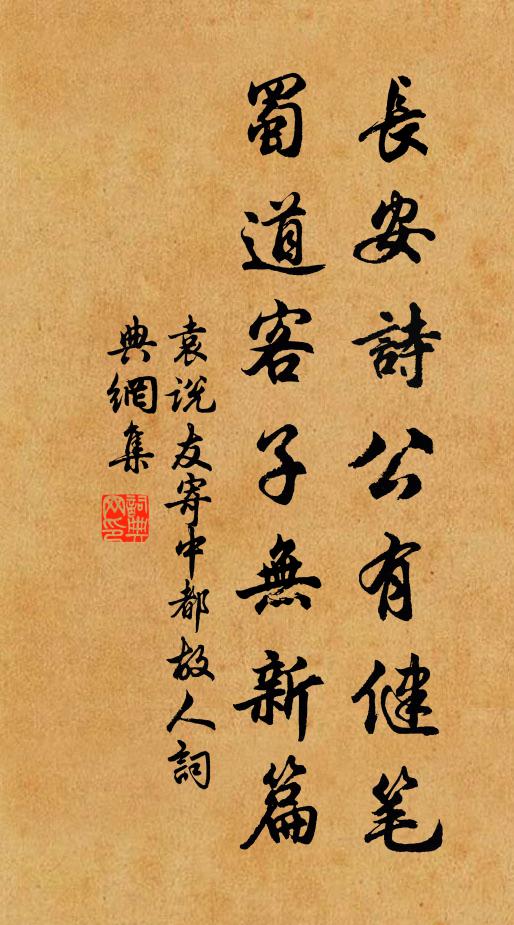 長安詩公有健笔
蜀道客子無新篇
袁说友寄中都故人詞
典網集
詞典網印